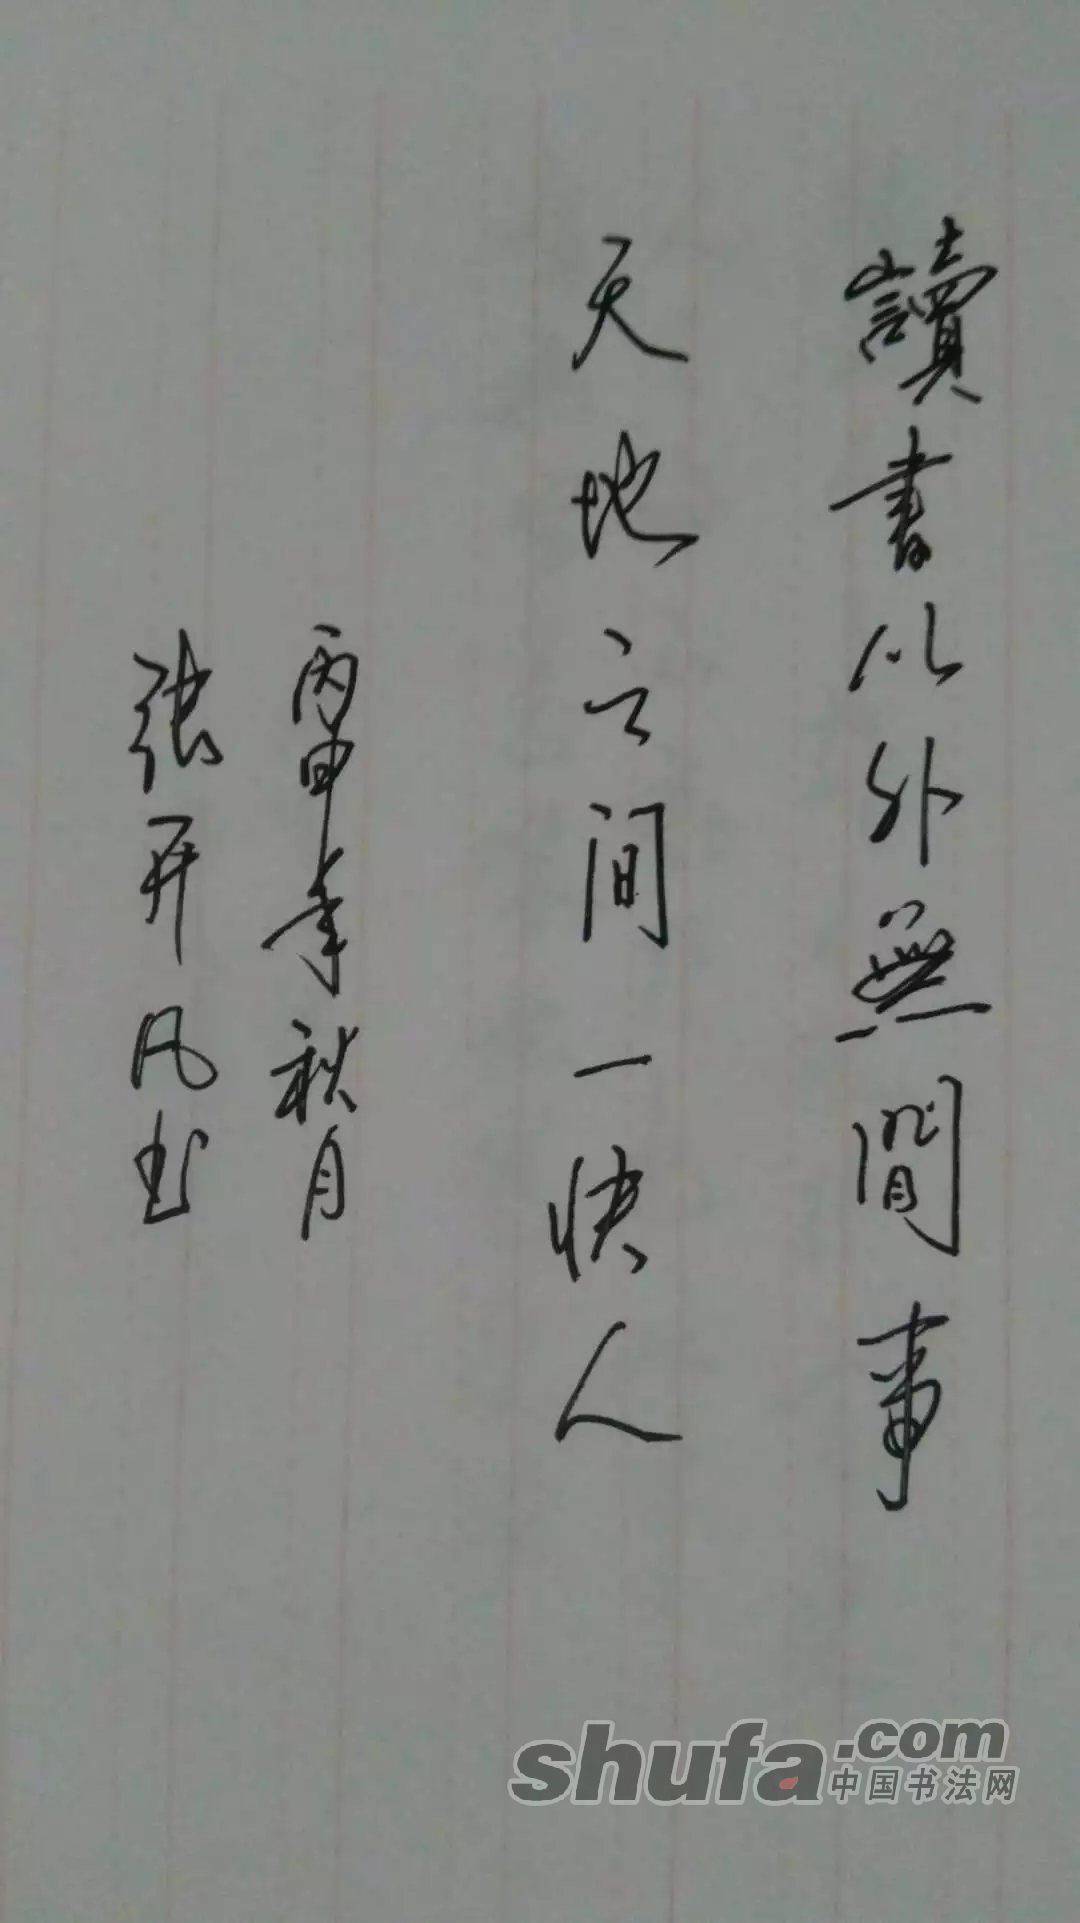 讀書以外無閒事
天地之间一快人
丙申年秋月
张开凡书
shufa.com
中国书法网